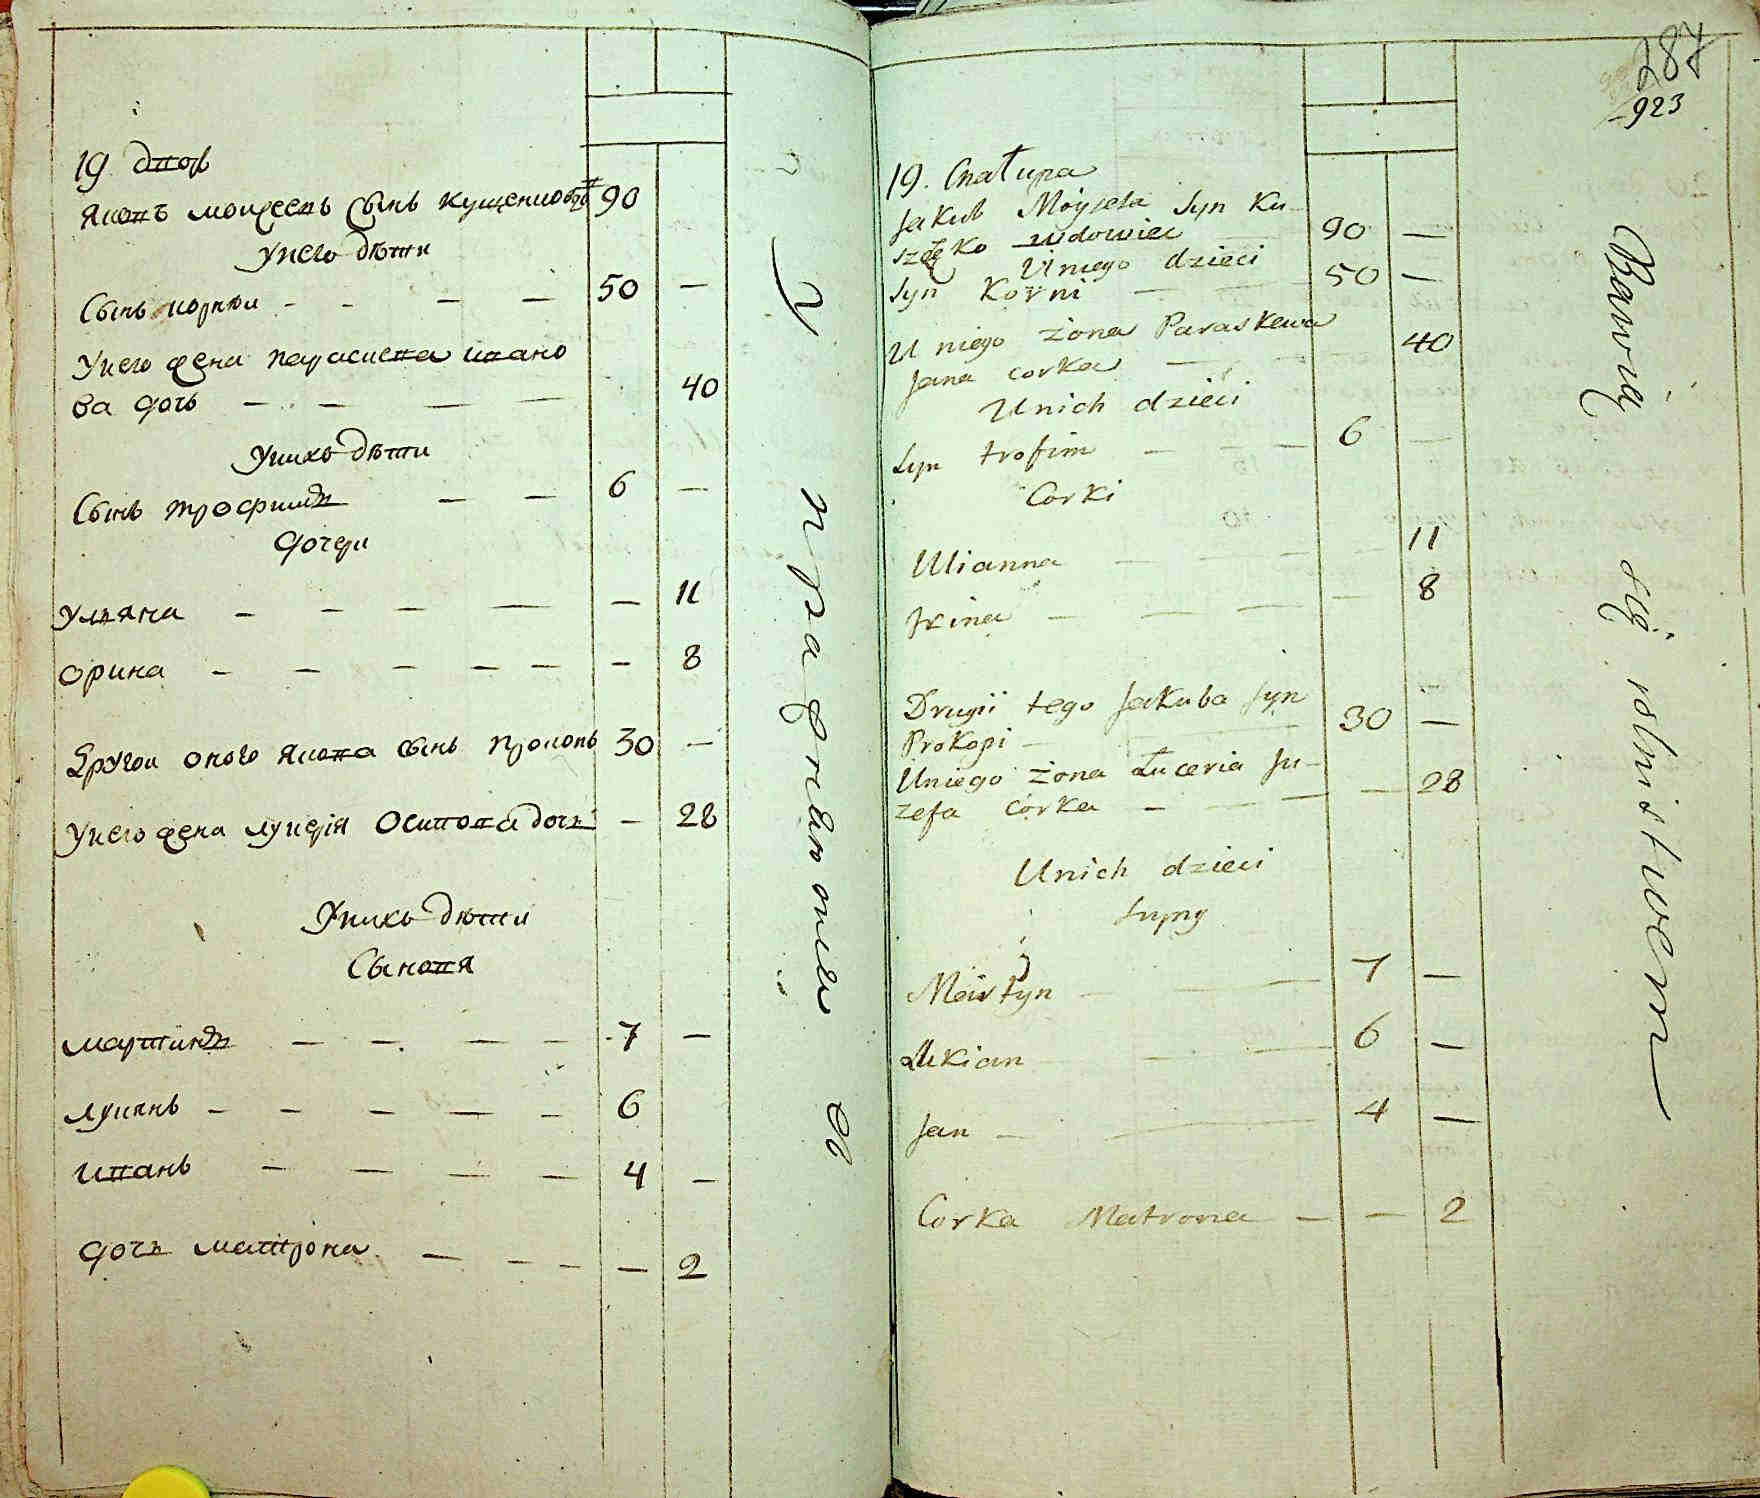 19 дворъ
Яковъ Моисеевъ сынъ Кущенковъ 90
У него дѣти
Сынъ Корнѣи - - - - 50 —
У него жена Параскева Ивано
ва дочь — — — — 40
У нихъ дѣти
Сынъ Трофимъ — — 6 —
Дочери
Уляна — — — — — 11
Орина — — — — — — 8
Другои оного Якова сынъ Прокопъ 30 —
У него жена Лукерія Осипова дочь — 28
У нихъ дѣти
Сыновя
Мартинъ — — — — 7 —
Лукянъ — — — — — 6
Иванъ — — — — 4 —
Дочь Матрона — — — — 2
287
923
19. Chałupa
Jakub Moyseia Syn Ku-
szczęko wdowiec 90 —
U niego dzieci
Syn Korni — — 50 —
U niego żona Paraskewa
Jana corka — — 40
U nich dzieci
Syn trofim — — — 6 —
Corki
Ulianna — — — — 11
Irina — — — — 8
Drugii tego Jakuba syn
Prokopi — — 30 —
U niego żona Łuceria Ju-
zefa córka — — — — 28
Unich dzieci
Syny
Martyn — — — 7 —
Łukian — — — 6 —
Jan — — 4 —
Corka Matrona — — 2
Bawią się rolnistwem